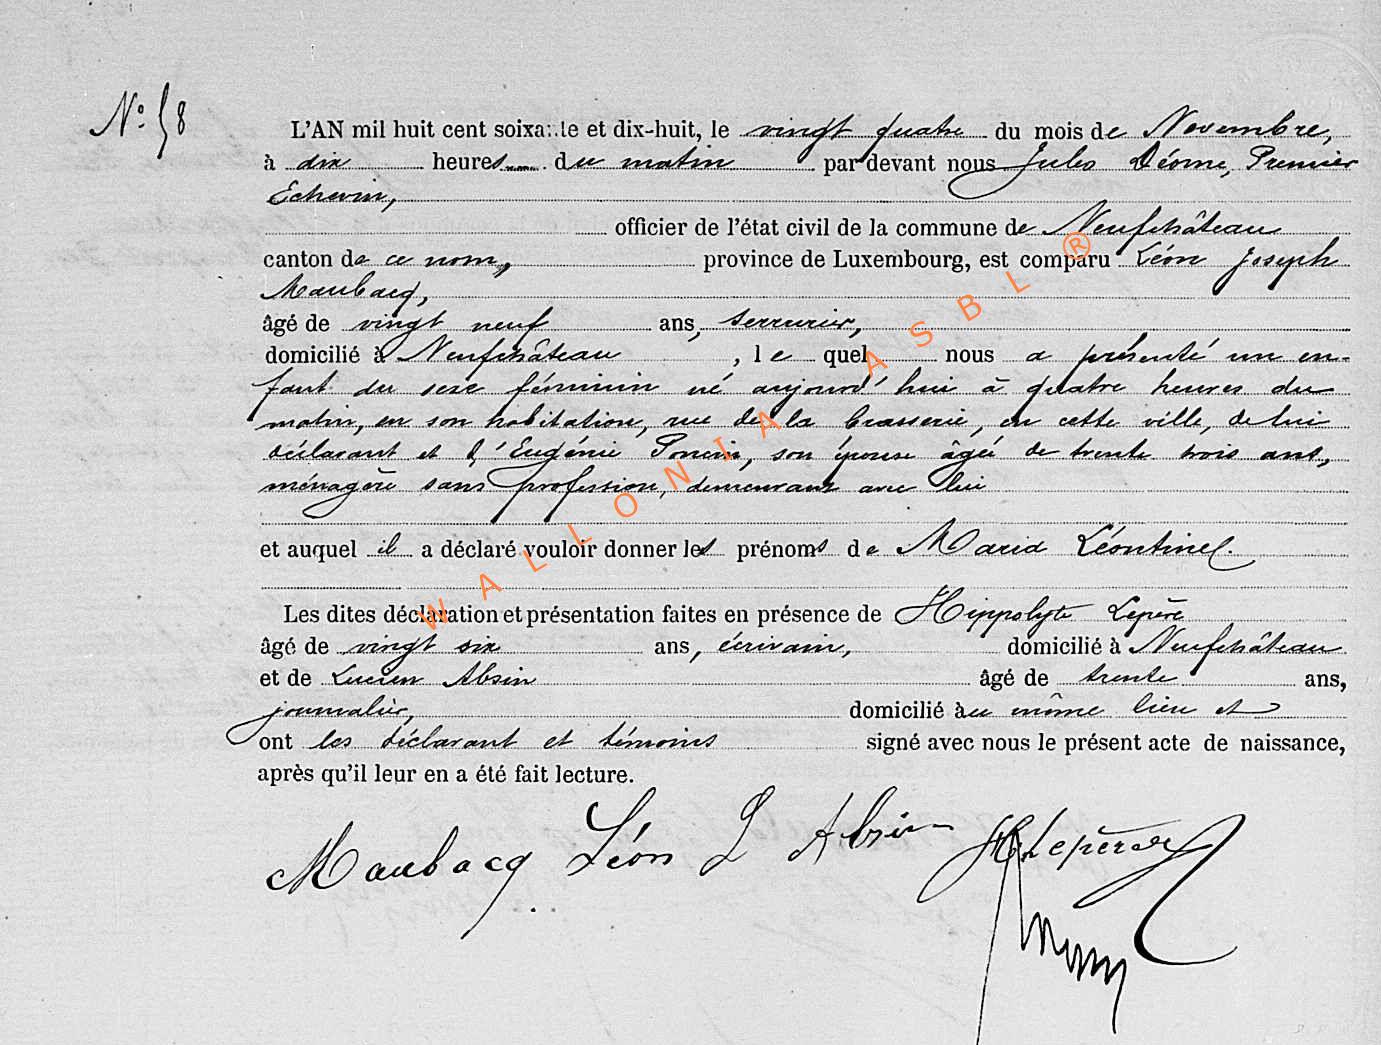 N° 58
L'AN mil huit cent soixante et dix-huit, le vingt quatre du mois de Novembre,
à dix heures du matin par devant nous Jules Déome, Premier
Echevin,
officier de l'état civil de la commune de Neufchâteau
canton de ce nom, province de Luxembourg, est comparu Léon Joseph
Maubacq,
âgé de vingt neuf ans, serrurier,
domicilié à Neufchâteau, le quel nous a présenté un en-
fant du sexe féminin né aujourd'hui à quatre heures du
matin, en son habitation, rue de la brasserie, en cette ville, de lui
déclarant et d'Eugénie Poncin, son épouse âgée de trente trois ans,
ménagère sans profession, demeurant avec lui
et auquel il a déclaré vouloir donner les prénoms de Maria Léontine.
Les dites déclaration et présentation faites en présence de Hippolyte Lepère
âgé de vingt six ans, écrivain, domicilié à Neufchâteau
et de Lucien Absin âgé de trente ans,
journalier, domicilié au même lieu et
ont les déclarant et témoins signé avec nous le présent acte de naissance,
après qu'il leur en a été fait lecture.
Maubacq Léon L Absin H. Lepère
WALLONIA ASBL ®